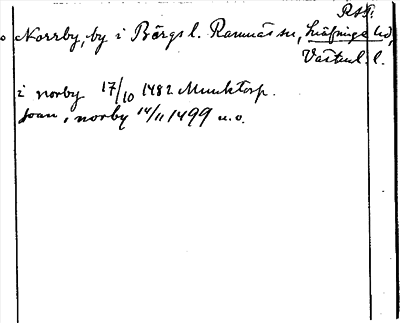 RAP.
Norrby, by i Bergs l. Ramnäs sn, Snäfringe hd,
Västml. l.
i norby 17/10 1482 Munktorp.
joan i norby 14/11 1499 u.o.